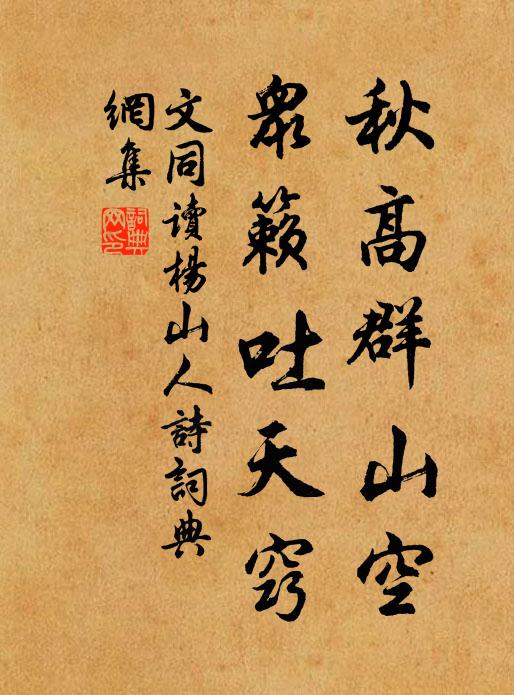 秋高群山空
眾籟吐天竅
文同讀楊山人詩詞典
網集
詞典網印